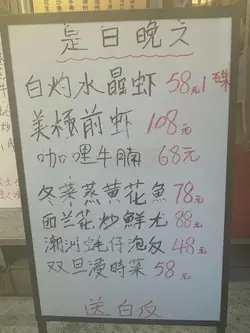 是日晚文
白灼水晶虾 58元1磅
美極前虾 108元
咖喱牛腩 68元
冬菜蒸黄花魚 78元
西兰花炒鮮尤 88元
潮洲蚝仔泡反 48元
双旦浸時菜 58元
送白反